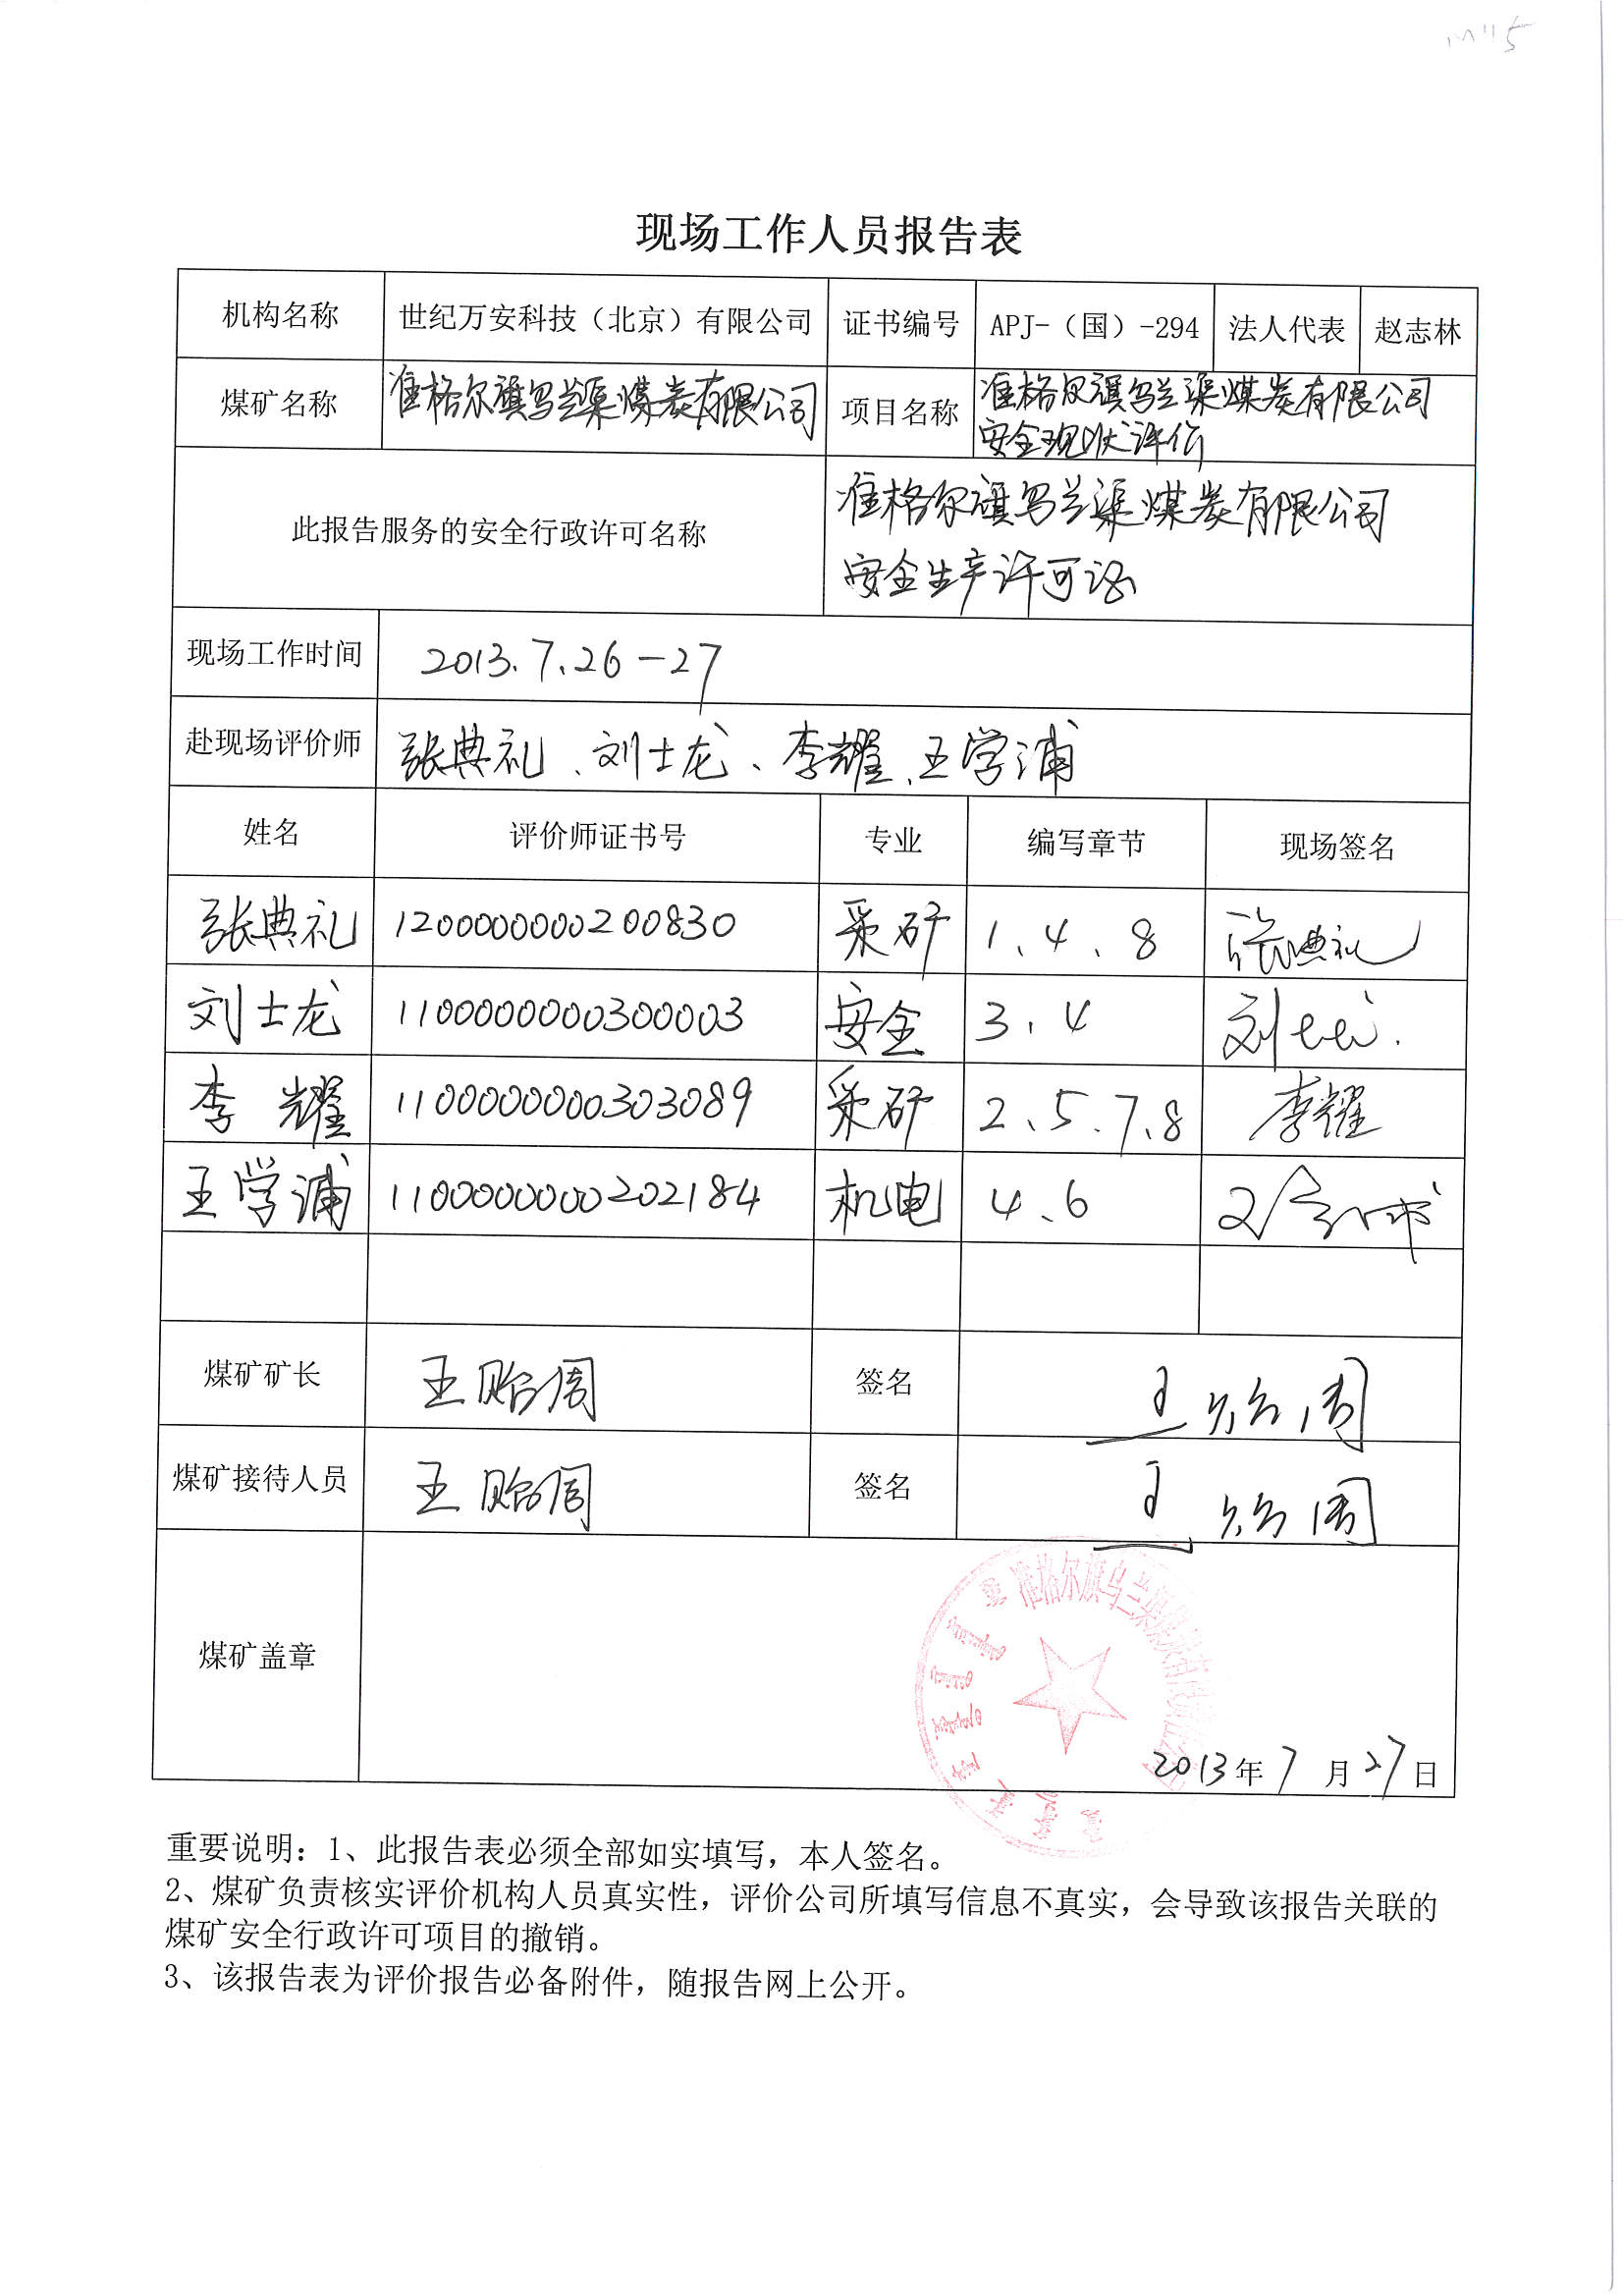 现场工作人员报告表
机构名称 世纪万安科技（北京）有限公司 证书编号 APJ-（国）-294 法人代表 赵志林
煤矿名称 准格尔旗乌兰渠煤炭有限公司 项目名称 准格尔旗乌兰渠煤炭有限公司
安全现状评价
此报告服务的安全行政许可名称 准格尔旗乌兰渠煤炭有限公司
安全生产许可证
现场工作时间 2013.7.26-27
赴现场评价师 张典礼、刘士龙、李耀、王学浦
姓名 评价师证书号 专业 编写章节 现场签名
张典礼 1200000000200830 采矿 1、4、8 张典礼
刘士龙 1100000000300003 安全 3、4 刘士龙
李耀 1100000000303089 采矿 2、5、7、8 李耀
王学浦 1100000000202184 机电 4、6
煤矿矿长 王贻周 签名 王贻周
煤矿接待人员 王贻周 签名 王贻周
准格尔旗乌兰渠煤炭有限责任公司
煤矿盖章
2013年7月27日
重要说明：1、此报告表必须全部如实填写，本人签名。
2、煤矿负责核实评价机构人员真实性，评价公司所填写信息不真实，会导致该报告关联的
煤矿安全行政许可项目的撤销。
3、该报告表为评价报告必备附件，随报告网上公开。